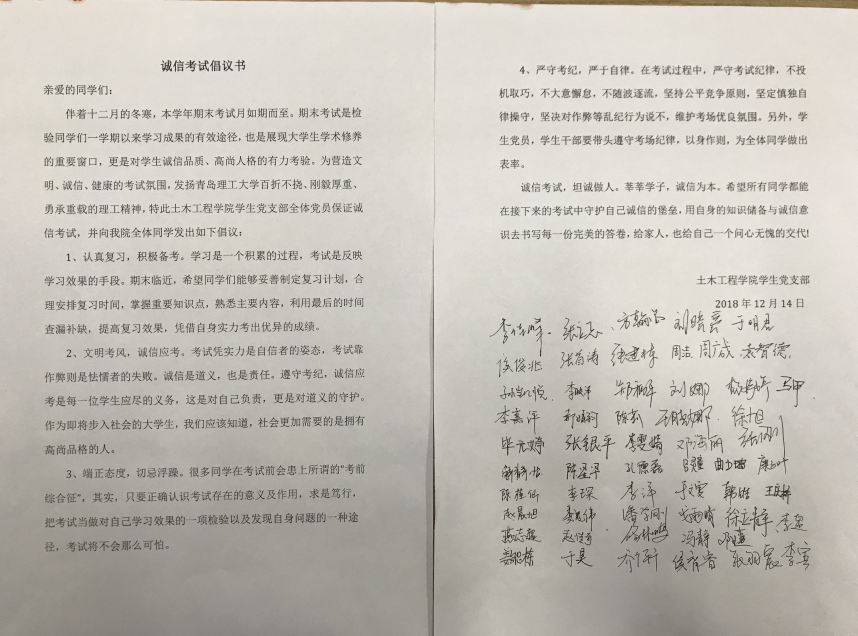 诚信考试倡议书
亲爱的同学们：
伴着十二月的冬寒，本学年期末考试月如期而至。期末考试是检
验同学们一学期以来学习成果的有效途径，也是展现大学生学术修养
的重要窗口，更是对学生诚信品质、高尚人格的有力考验。为营造文
明、诚信、健康的考试氛围，发扬青岛理工大学百折不挠、刚毅厚重、
勇承重载的理工精神，特此土木工程学院学生党支部全体党员保证诚
信考试，并向我院全体同学发出如下倡议：
1、认真复习，积极备考。学习是一个积累的过程，考试是反映
学习效果的手段。期末临近，希望同学们能够妥善制定复习计划，合
理安排复习时间，掌握重要知识点，熟悉主要内容，利用最后的时间
查漏补缺，提高复习效果，凭借自身实力考出优异的成绩。
2、文明考风，诚信应考。考试凭实力是自信者的姿态，考试靠
作弊则是怯懦者的失败。诚信是道义，也是责任。遵守考纪，诚信应
考是每一位学生应尽的义务，这是对自己负责，更是对道义的守护。
作为即将步入社会的大学生，我们应该知道，社会更加需要的是拥有
高尚品格的人。
3、端正态度，切忌浮躁。很多同学在考试前会患上所谓的“考前
综合征”，其实，只要正确认识考试存在的意义及作用，求是笃行，
把考试当做对自己学习效果的一项检验以及发现自身问题的一种途
径，考试将不会那么可怕。
4、严守考纪，严于自律。在考试过程中，严守考试纪律，不投
机取巧，不大意懈怠，不随波逐流，坚持公平竞争原则，坚定慎独自
律操守，坚决对作弊等乱纪行为说不，维护考场优良氛围。另外，学
生党员，学生干部要带头遵守考场纪律，以身作则，为全体同学做出
表率。
诚信考试，坦诚做人。莘莘学子，诚信为本。希望所有同学都能
在接下来的考试中守护自己诚信的堡垒，用自身的知识储备与诚信意
识去书写每一份完美的答卷，给家人，也给自己一个问心无愧的交代!
土木工程学院学生党支部
2018 年 12 月 14 日
张立志 刘晴 于明君
侯俊兆 周洁 袁智德
刘娜 马甲
李嘉洋 徐旭
毕元婷 张银平 李雯婧 邓海丽
陈星泽
李琛 李洋
徐立静
冯静
于昊 侯睿睿 张羽宸 李宾